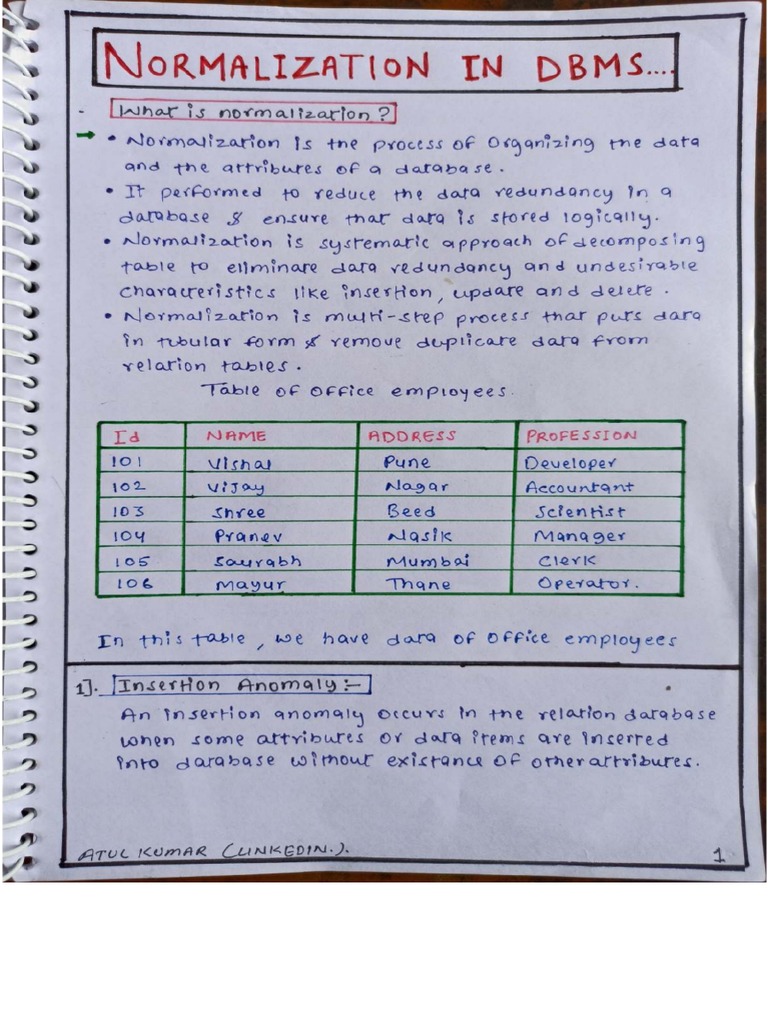 NORMALIZATION IN DBMS....
What is normalization?
• Normalization is the process of organizing the data
and the attributes of a database.
• It performed to reduce the data redundancy in a
database & ensure that data is stored logically.
• Normalization is systematic approach of decomposing
table to eliminate data redundancy and undesirable
characteristics like insertion, update and delete.
• Normalization is multi-step process that puts data
in tubular form & remove duplicate data from
relation tables.
Table of office employees.
Id NAME ADDRESS PROFESSION
101 Vishal Pune Developer
102 Vijay Nagar Accountant
103 Shree Beed Scientist
104 Pranev Nasik Manager
105 Saurabh Mumbai Clerk
106 Mayur Thane Operator.
In this table, we have data of office employees
1]. Insertion Anomaly :-
An insertion anomaly occurs in the relation database
when some attributes or data items are inserted
into database without existance of other attributes.
ATUL KUMAR (LINKEDIN.). 1